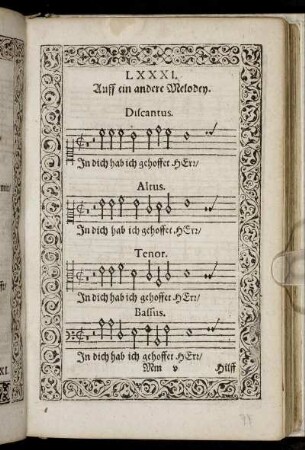 LXXXI.
Auff ein andere Melodey.
Discantus.
In dich hab ich gehoffet HErr/
Altus.
In dich hab ich gehoffet HErr/
Tenor.
In dich hab ich gehoffet HErr/
Bassus.
In dich hab ich gehoffet HErr/
Mm v Hilff